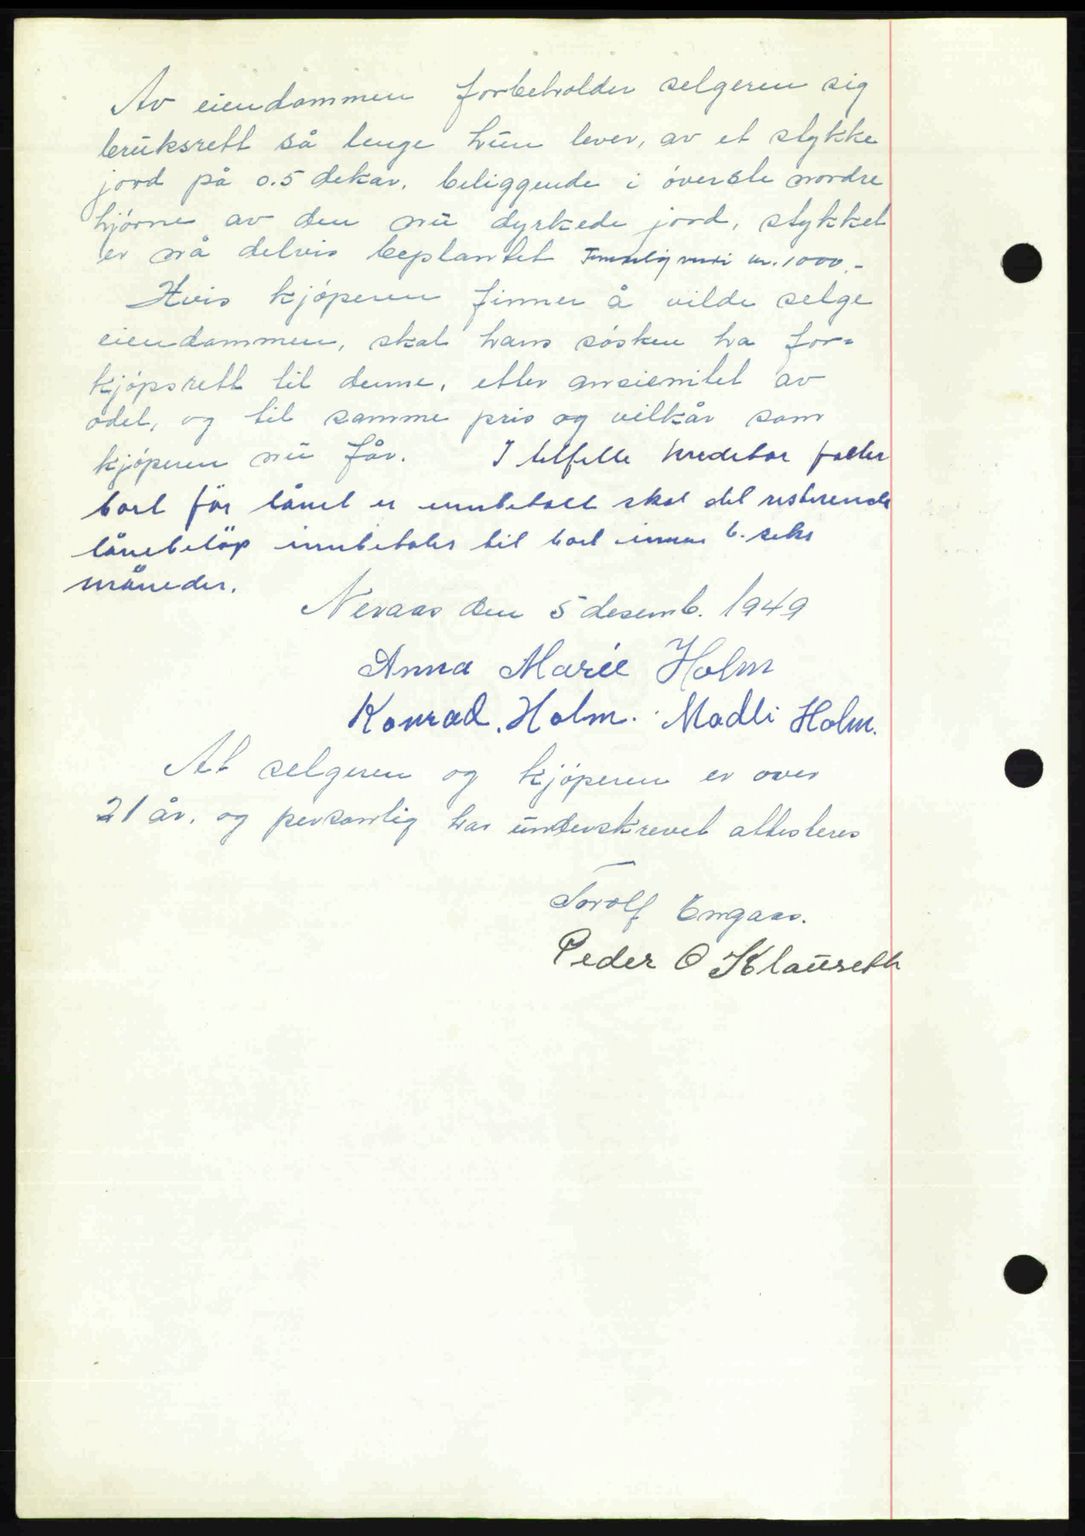 Av eiendommen forbeholder selgeren sig
bruksrett så lenge hun lever, av et stykke
jord på 0.5 dekar, beliggende i överste nordre
hjörne av den nu dyrkede jord, stykket
er nå delvis beplantet kr. 1000,-
Hvis kjöperen finner å vilde selge
eiendommen, skal hans sösken ha for=
kjöpsrett til denne, etter ansienitet av
odel, og til samme pris og vilkår som
kjöperen nu får. I tilfelle kreditor faller
bort för lånet er innbetalt skal det resterende
lånebelöp innbetales til boet innen 6. seks
måneder.
Neraas den 5 desemb. 1949
Anna Marie Holm
Konrad. Holm. Modli Holm.
At selgeren og kjöperen er over
21 år, og personlig har underskrevet attesteres
Torolf Engaas.
Peder O Klauseth